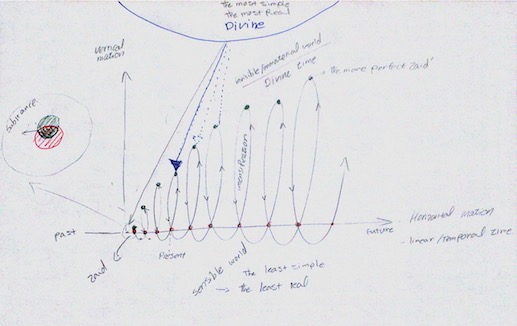 the most simple
the most Real
Divine
Vertical
motion
Invisible/immaterial world
Divine time
"the more perfect Zaid"
Substance
past
Future
Horizontal motion
- linear/temporal time
Zaid
sensible world
The least simple
→ the least real